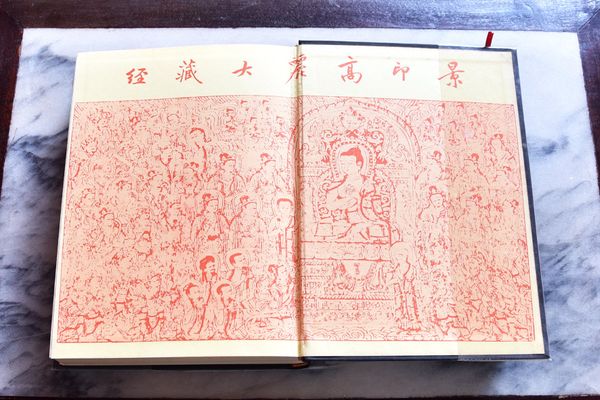 景印高麗大藏經